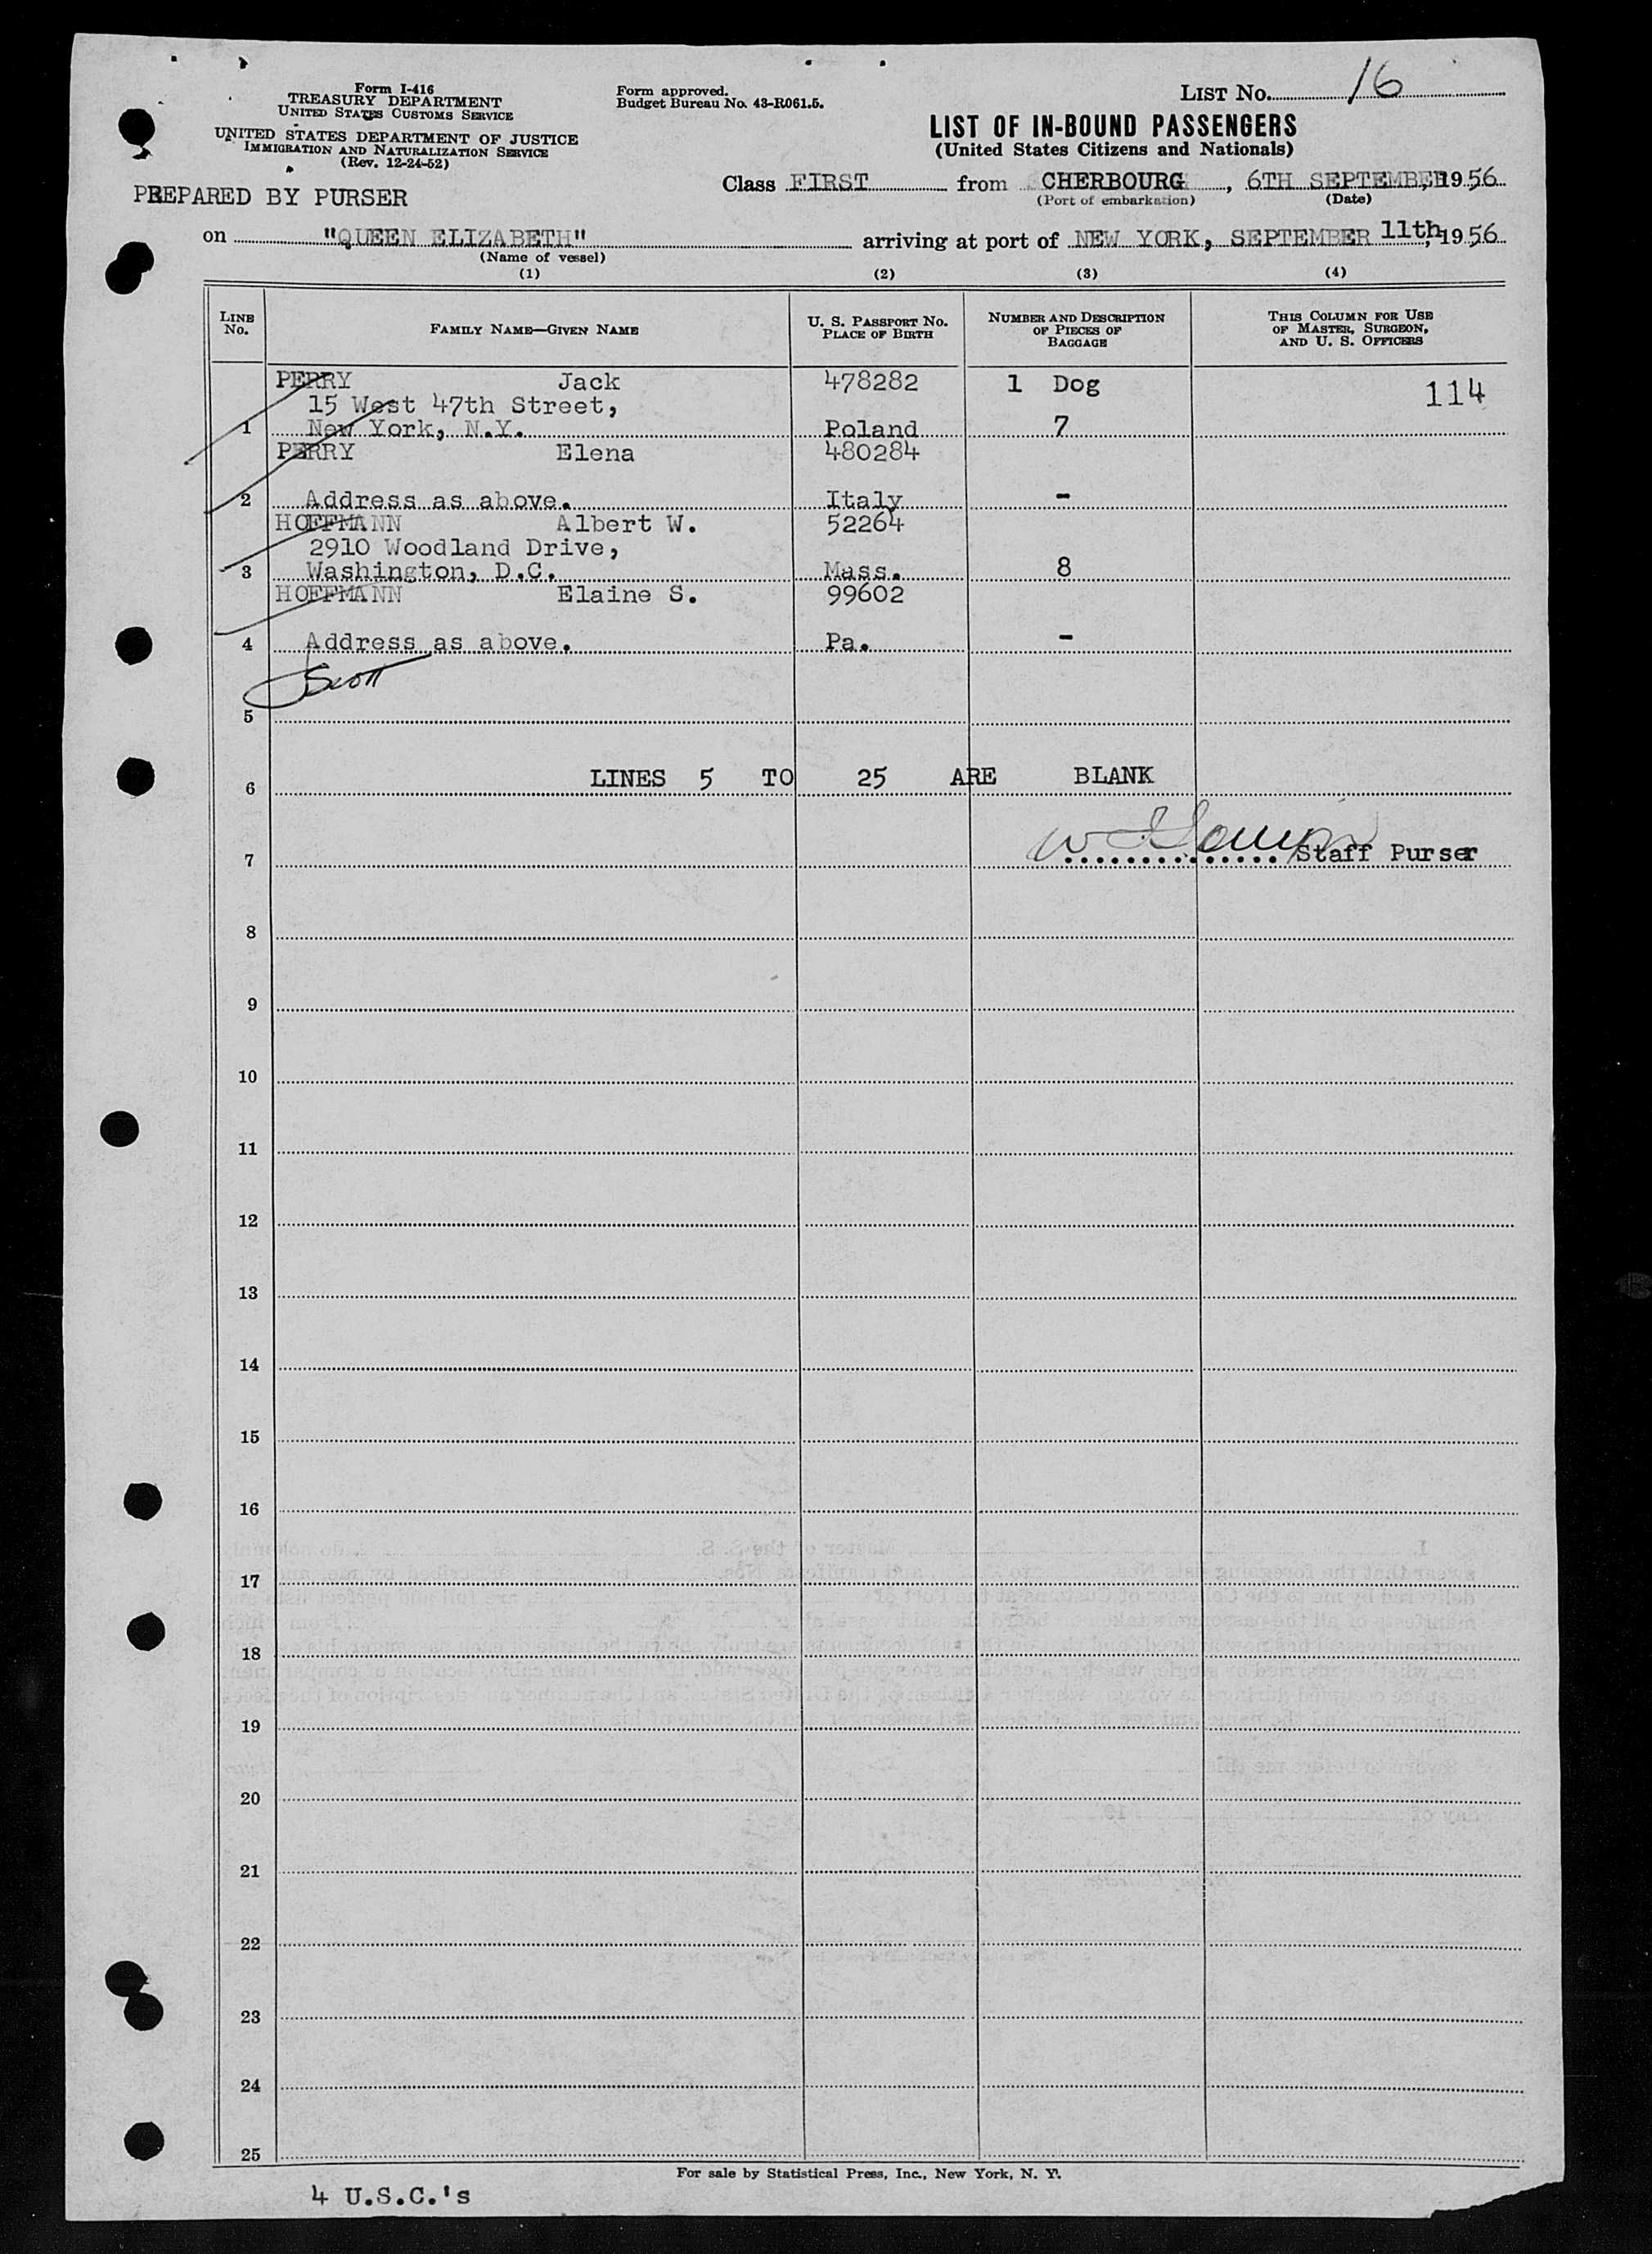 Form I-416
TREASURY DEPARTMENT
UNITED STATES CUSTOMS SERVICE
UNITED STATES DEPARTMENT OF JUSTICE
IMMIGRATION AND NATURALIZATION SERVICE
(Rev. 12-24-52)
PREPARED BY PURSER
Form approved.
Budget Bureau No. 43-R061.5.
LIST No. 16
LIST OF IN-BOUND PASSENGERS
(United States Citizens and Nationals)
Class FIRST from CHERBOURG, 6TH SEPTEMBER, 1956
(Port of embarkation) (Date)
on "QUEEN ELIZABETH" arriving at port of NEW YORK, SEPTEMBER 11th, 1956
(Name of vessel)
(1) (2) (3) (4)
LINE No. FAMILY NAME—GIVEN NAME U. S. PASSPORT No. PLACE OF BIRTH NUMBER AND DESCRIPTION OF PIECES OF BAGGAGE THIS COLUMN FOR USE OF MASTER, SURGEON, AND U. S. OFFICERS
PERRY Jack 478282 1 Dog 114
15 West 47th Street,
1 New York, N.Y. Poland 7
PERRY Elena 480284
2 Address as above. Italy -
HOFFMANN Albert W. 52264
2910 Woodland Drive,
3 Washington, D.C. Mass. 8
HOFFMANN Elaine S. 99602
4 Address as above. Pa. -
Scott
5
LINES 5 TO 25 ARE BLANK
6
7 Staff Purser
8
9
10
11
12
13
14
15
16
17
18
19
20
21
22
23
24
25
For sale by Statistical Press, Inc., New York, N. Y.
4 U.S.C.'s